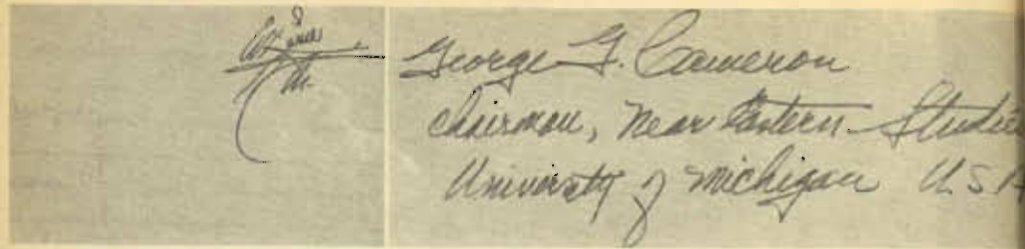 George G. Cameron
Chairman, Near Eastern Studies
University of Michigan U.S.A